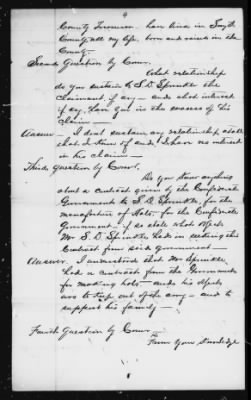 County Treasurer. have lived in Smyth
County all my life, born and raised in the
County.
Second Question by Comr.
What relationship
do you sustain to S. D. Sprinkle the
Claimant if any — and what interest
if any have you in the success of his
Claim —
Answer. — I dont sustain any relationship at all
that I know of and I have no interest
in his claim —
Third Question by Comr.
Do you know anything
about a contract given by the Confederate
Government to S. D. Sprinkle, for the
manufacture of Hats, for the Confederate
Government, if so state what object
Mr. S. D. Sprinkle had in getting this
Contract from said government —
Answer. I understood that Mr Sprinkle
had a contract from the Government
for making hats and his object
was to keep out of the army — and to
support his family —
Fourth Question by Comr —
From your knowledge